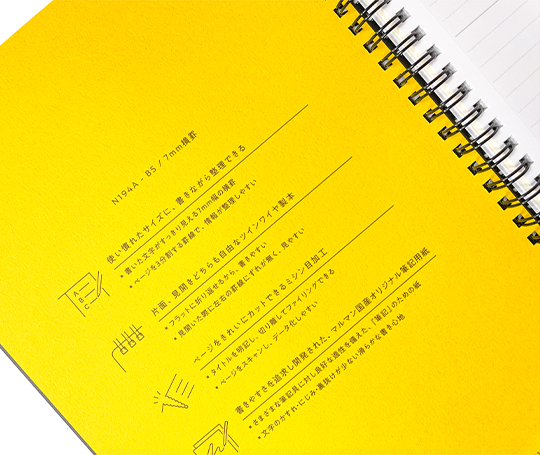 N194A - B5 / 7mm横罫
使い慣れたサイズに、書きながら整理できる
• 書いた文字がすっきり見える7mm幅の横罫
• ページを3分割する罫線で、情報が整理しやすい
A
B
C
片面、見開きどちらも自由なツインワイヤ製本
• フラットに折り返せるから、書きやすい
• 見開いた際に左右の罫線にずれが無く、見やすい
ページをきれいにカットできるミシン目加工
• タイトルを明記し、切り離してファイリングできる
• ページをスキャンし、データ化しやすい
書きやすさを追求し開発された、マルマン国産オリジナル筆記用紙
• さまざまな筆記具に対し良好な適性を備えた、「筆記」のための紙
• 文字のかすれ・にじみ・裏抜けが少ない滑らかな書き心地